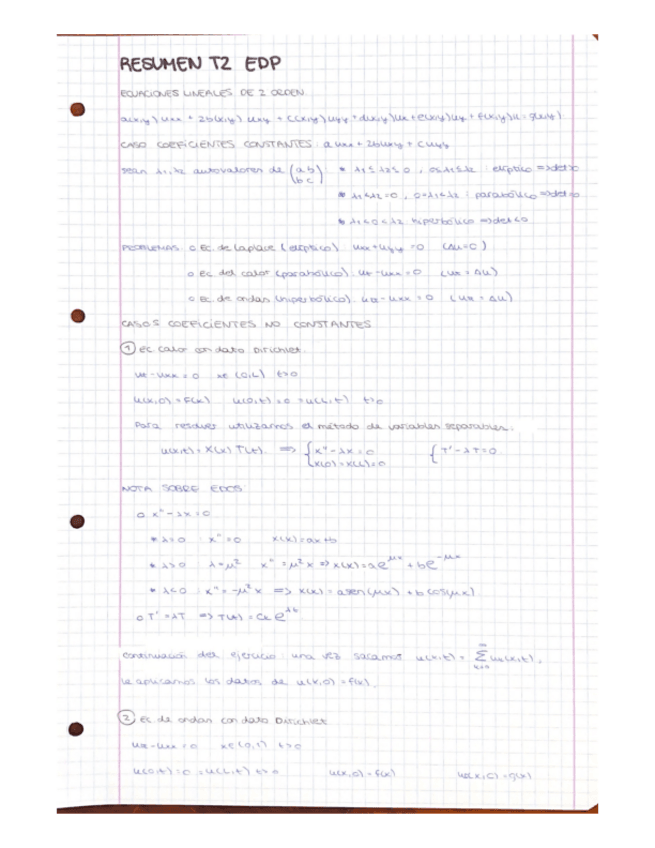 RESUMEN T2 EDP
ECUACIONES LINEALES DE 2 ORDEN
a(x,y) uxx + 2b(x,y) uxy + c(x,y) uyy + d(x,y)ux + e(x,y)uy + f(x,y)u = g(x,y)
CASO COEFICIENTES CONSTANTES: a uxx + 2buxy + cuyy
sean λ1, λ2 autovalores de (a b; b c) * λ1≤λ2≤0, 0≤λ1≤λ2 : elíptico => det>0
* λ1<λ2=0, 0=λ1<λ2 : parabólico => det=0
* λ1<0<λ2 hiperbólico => det<0
PROBLEMAS: o Ec. de Laplace (elíptico): uxx+uyy=0 (Δu=0)
o Ec del calor (parabólico): ut-uxx=0 (ut=Δu)
o Ec. de ondas (hiperbólico): utt-uxx=0 (utt=Δu)
CASOS COEFICIENTES NO CONSTANTES
① ec calor con dato Dirichlet.
ut-uxx=0 x∈(0,L) t>0
u(x,0)=f(x) u(0,t)=0=u(L,t) t>0
Para resolver utilizamos el método de variables separables.
u(x,t)=X(x)T(t). => { x''-λx=0 { T'-λT=0
x(0)=x(L)=0
NOTA SOBRE EDOS
o x''-λx=0
* λ=0 : x''=0 x(x)=ax+b
* λ>0 λ=μ² x''=μ²x => x(x)=ae^μx + be^-μx
* λ<0 : x''=-μ²x => x(x)=asen(μx) + bcos(μx)
o T'=λT => T(t)=Ck e^λt
continuación del ejercicio: una vez sacamos u(x,t)= ∞ Σ k=0 uk(x,t),
le aplicamos los datos de u(x,0)=f(x).
② Ec de ondas con dato Dirichlet
utt-uxx=0 x∈(0,1) t>0
u(0,t)=0=u(L,t) t>0 u(x,0)=f(x) ut(x,0)=g(x)